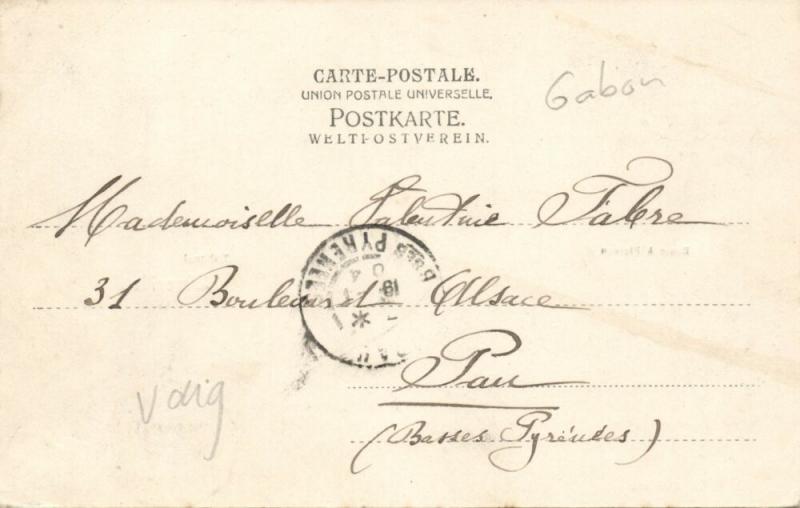 CARTE-POSTALE.
UNION POSTALE UNIVERSELLE.
POSTKARTE.
WELTPOSTVEREIN.
Gabon
Mademoiselle Valentine Fabre
31 Boulevard Alsace
Pau
(Basses Pyrénées)
PAU
BSES PYRENEES
Vdig